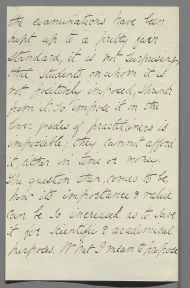 the examinations have been
kept up to a pretty fair
standard, it is not surprising
that students on whom it is
not positively imposed, shrink
from it. To impose it on the
lower grades of practitioners is
impossible; they cannot afford
it, either in time or money.
The question then, comes to be
how its importance & value
can be so increased as to save
it for scientific & academical
purposes. What I mean to propose